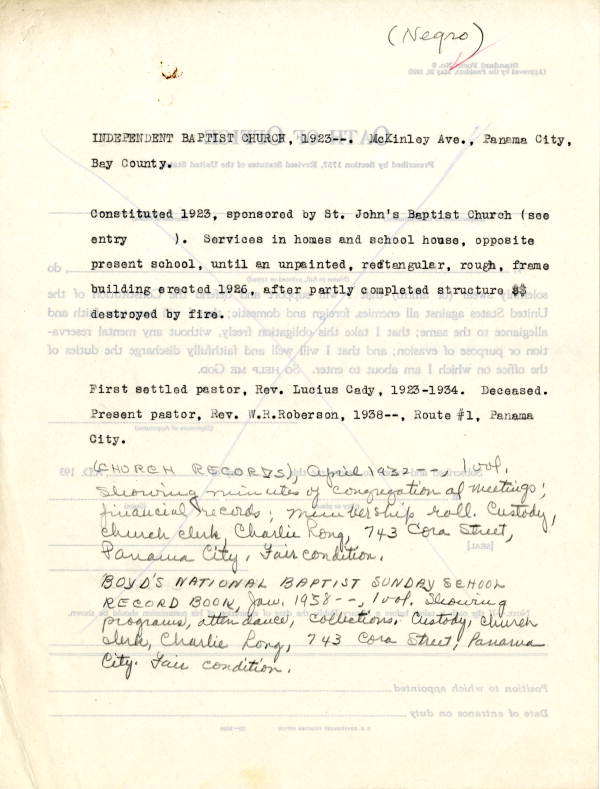 (Negro)
Standard Form No. 8
(Approved by the President, May 22, 1925)
OATH OF OFFICE
Prescribed by Section 1757, Revised Statutes of the United States
INDEPENDENT BAPTIST CHURCH, 1923--. McKinley Ave., Panama City,
Bay County.
Constituted 1923, sponsored by St. John's Baptist Church (see
entry ). Services in homes and school house, opposite
present school, until an unpainted, rectangular, rough, frame
building erected 1926, after partly completed structure
destroyed by fire.
do
solemnly swear (or affirm) that I will support and defend the Constitution of the
United States against all enemies, foreign and domestic; faith and
allegiance to the same; that I take this obligation freely, without any mental reserva-
tion or purpose of evasion; and that I will well and faithfully discharge the duties of
the office on which I am about to enter. SO HELP ME GOD.
First settled pastor, Rev. Lucius Cady, 1923-1934. Deceased.
Present pastor, Rev. W.R.Roberson, 1938--, Route #1, Panama
City.
(CHURCH RECORDS), April 1932--, 1 vol.
Showing minutes of congregation af meetings;
financial records; membership roll. Custody,
church clerk, Charlie Long, 743 Cora Street,
Panama City. Fair condition.
[SEAL]
BOYD'S NATIONAL BAPTIST SUNDAY SCHOOL
RECORD BOOK, Jan. 1938--, 1 vol. Showing
programs, attendance, collections. Custody, church
clerk, Charlie Long, 743 Cora Street, Panama
City. Fair condition.
Position to which appointed
Date of entrance on duty